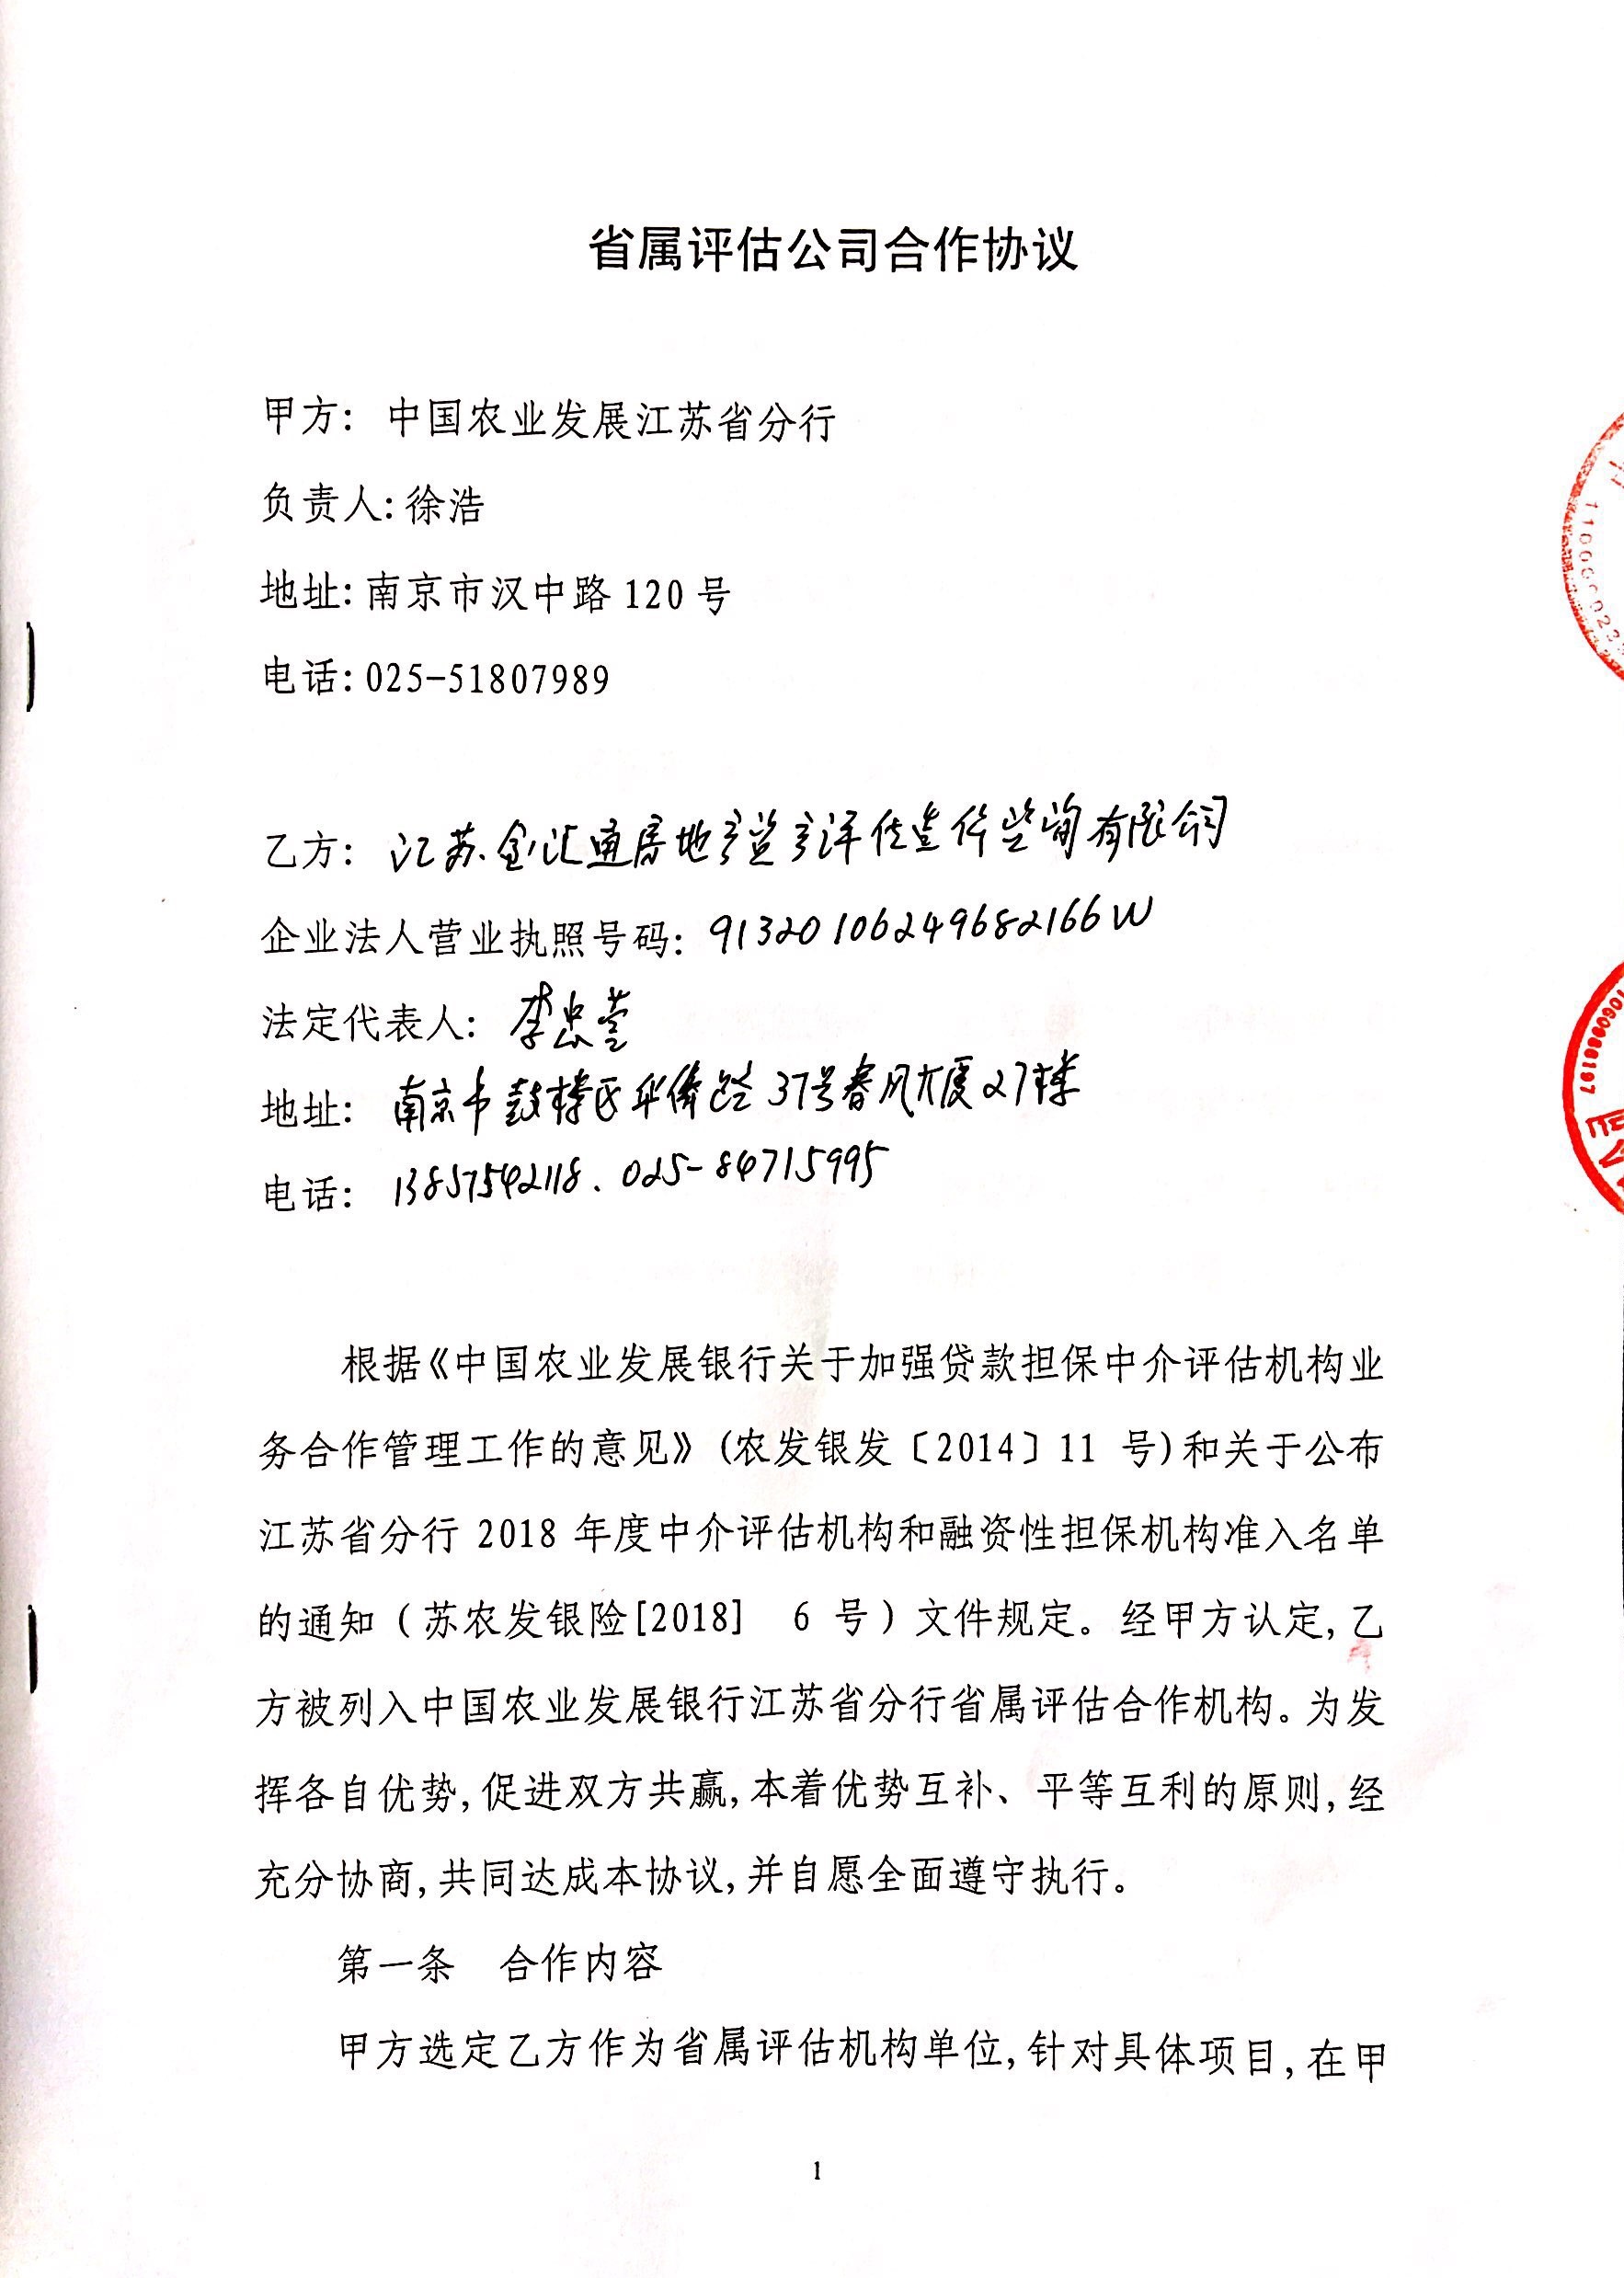 省属评估公司合作协议
甲方: 中国农业发展江苏省分行
负责人:徐浩
地址:南京市汉中路 120 号
电话:025-51807989
乙方: 江苏金汇通房地产资产评估造价咨询有限公司
企业法人营业执照号码: 91320106249682166W
法定代表人: 李忠
地址: 南京市鼓楼区 37号春风大厦27楼
电话: 13857542118、025-84715995
根据《中国农业发展银行关于加强贷款担保中介评估机构业
务合作管理工作的意见》(农发银发〔2014〕11 号)和关于公布
江苏省分行 2018 年度中介评估机构和融资性担保机构准入名单
的通知(苏农发银险[2018] 6 号)文件规定。经甲方认定,乙
方被列入中国农业发展银行江苏省分行省属评估合作机构。为发
挥各自优势,促进双方共赢,本着优势互补、平等互利的原则,经
充分协商,共同达成本协议,并自愿全面遵守执行。
第一条 合作内容
甲方选定乙方作为省属评估机构单位,针对具体项目,在甲
1